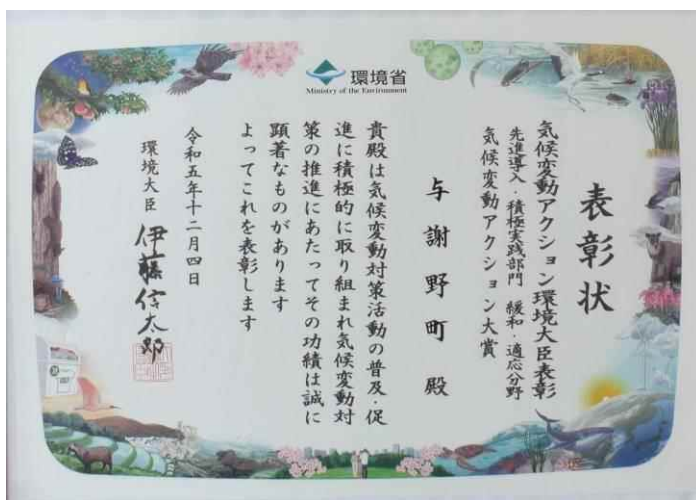 環境省
Ministry of the Environment
表彰状
気候変動アクション環境大臣表彰
先進導入・積極実践部門 緩和・適応分野
気候変動アクション大賞
与謝野町 殿
貴殿は気候変動対策活動の普及・促
進に積極的に取り組まれ気候変動対
策の推進にあたってその功績は誠に
顕著なものがあります
よってこれを表彰します
令和五年十二月四日
環境大臣 伊藤信太郎